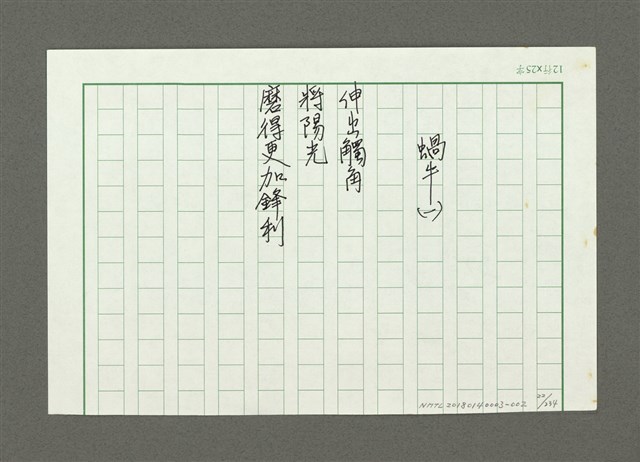 12行x25字
蝸牛(一)
伸出觸角
將陽光
磨得更加鋒利
NMTL20180140003-002
22/234